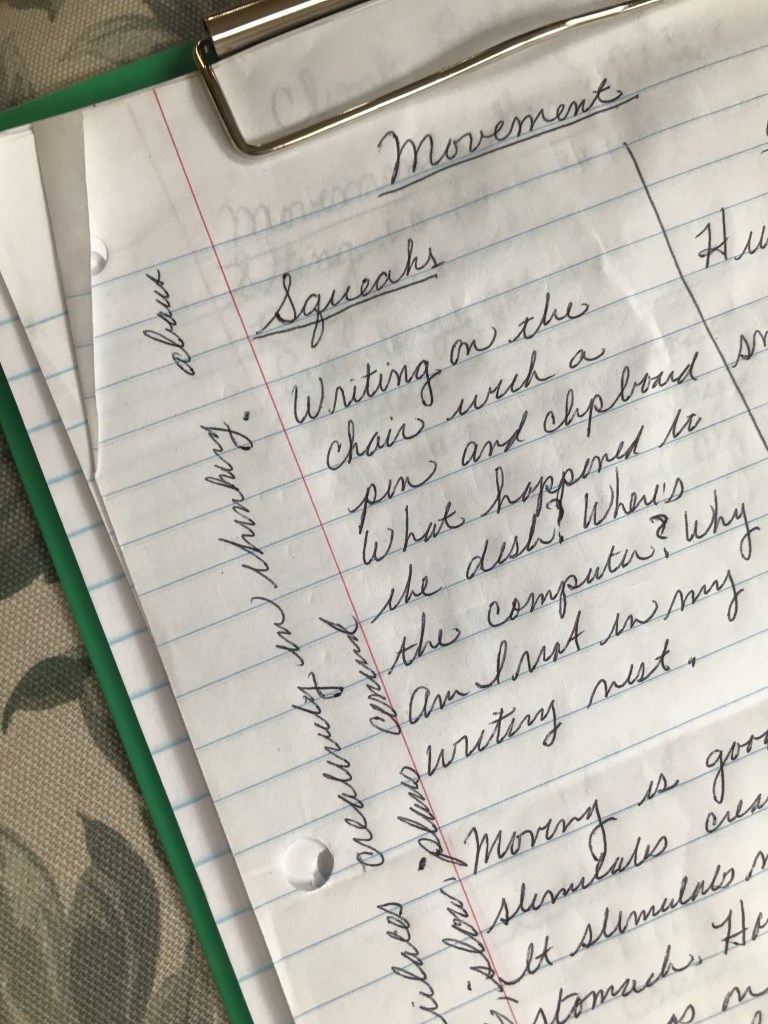 Movement
Squeaks
Writing on the
chair with a
pen and clipboard
What happened to
the desk? Where's
the computer? Why
am I not in my
writing nest.
Moving is good
stimulates
It stimulates
stomach.
on
Hu
about
creatively in thinking.
plans around
slow,